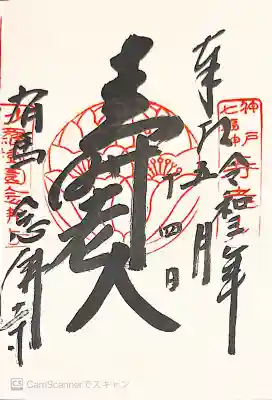 奉拝
令和三年
五月
十四日
壽老人
有馬 念佛寺
神戸
七福神
CamScannerでスキャン